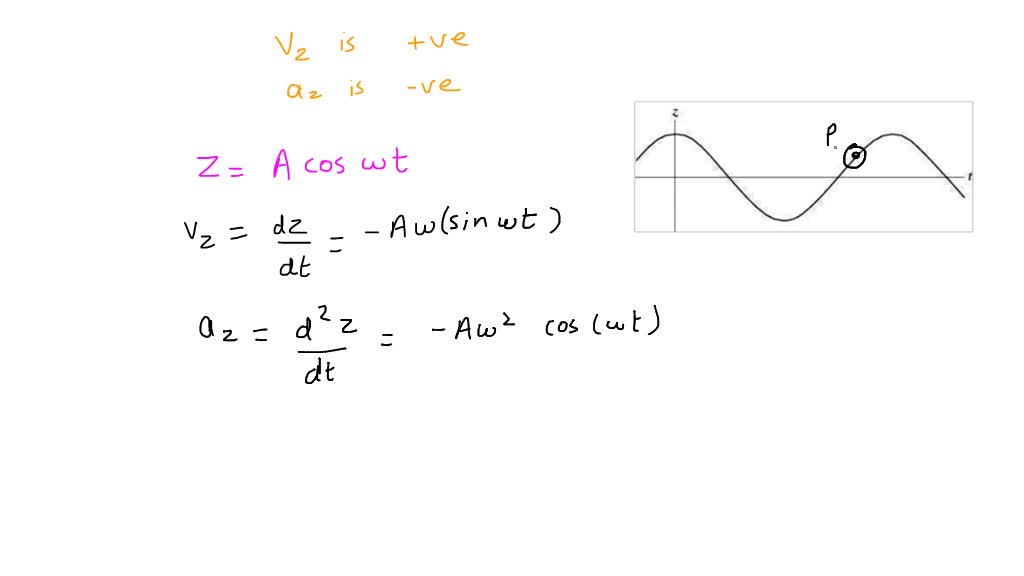 Vz is +ve
az is -ve
z
P.
t
Z = A cos ωt
Vz = dz/dt = - Aω(sin ωt)
az = d²z/dt = - Aω² cos(ωt)